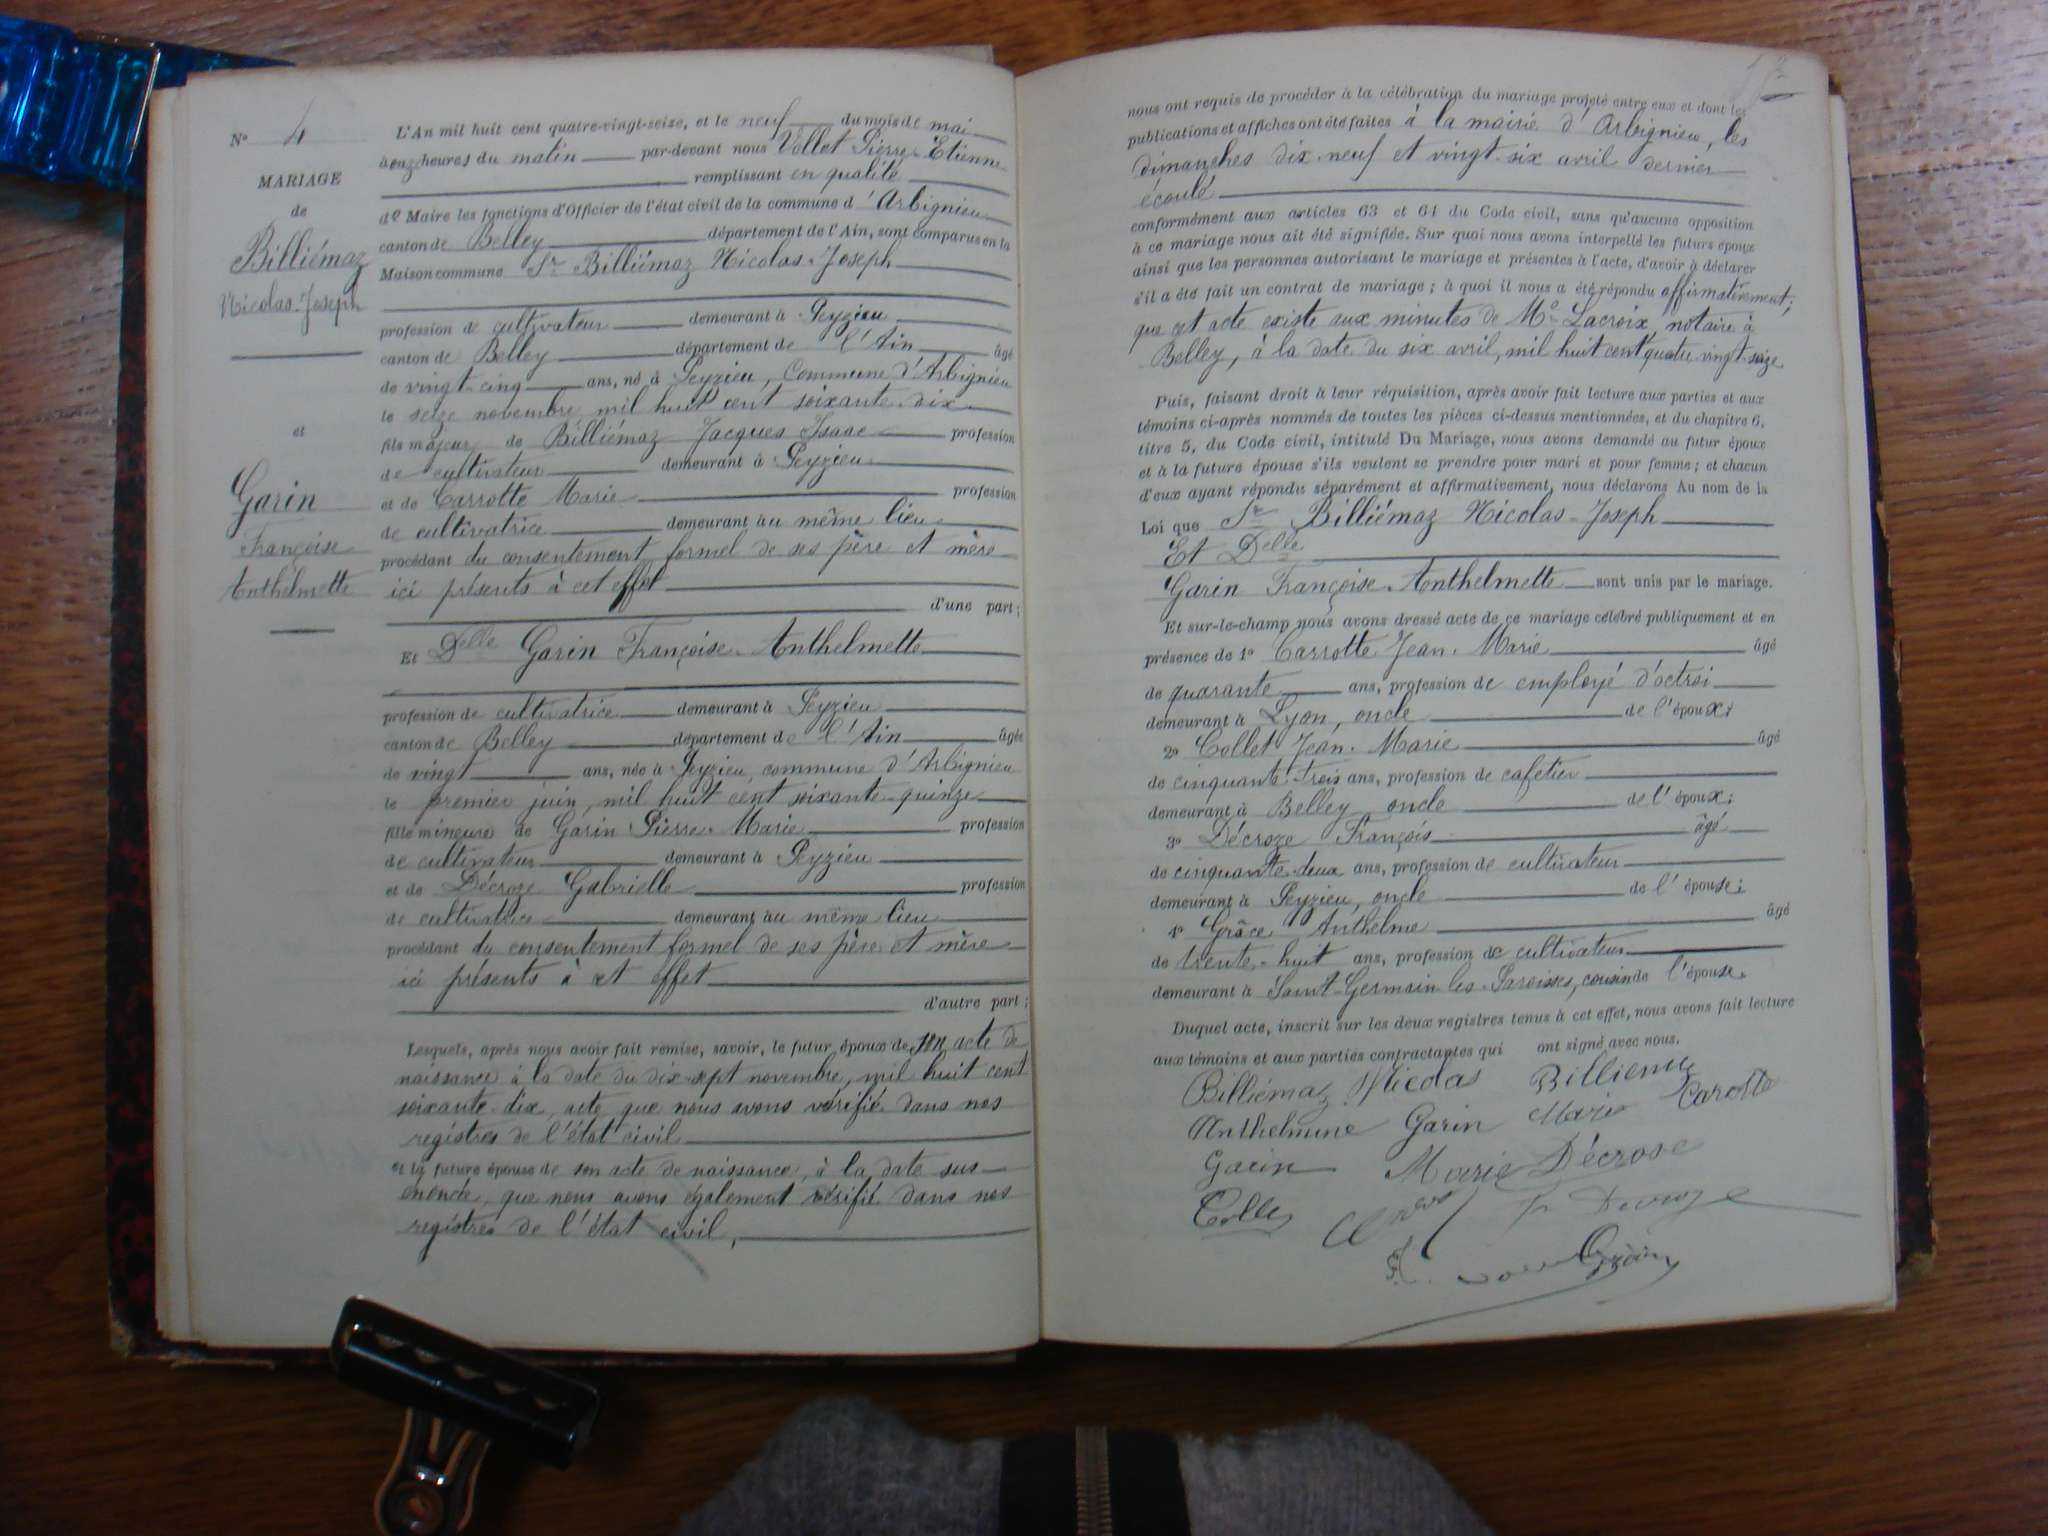 N° 4
MARIAGE
de
Billiémaz
Nicolas-Joseph
et
Garin
Françoise
Anthelmette
L'An mil huit cent quatre-vingt-seize, et le neuf du mois de mai
à onze heures du matin par-devant nous Vollet Pierre-Etienne
remplissant en qualité
de Maire les fonctions d'Officier de l'état civil de la commune d'Arbignieu
canton de Belley département de l'Ain, sont comparus en la
Maison commune Sr Billiémaz Nicolas-Joseph
profession de cultivateur demeurant à Peyzieu
canton de Belley département de l'Ain âgé
de vingt-cinq ans, né à Peyzieu, Commune d'Arbignieu
le seize novembre mil huit cent soixante-dix
fils majeur de Billiémaz Jacques Isaac profession
de cultivateur demeurant à Peyzieu
et de Carrotte Marie profession
de cultivatrice demeurant au même lieu
procédant du consentement formel de ses père et mère
ici présents à cet effet
d'une part;
Et Delle Garin Françoise-Anthelmette
profession de cultivatrice demeurant à Peyzieu
canton de Belley département de l'Ain âgée
de vingt ans, née à Peyzieu, commune d'Arbignieu
le premier juin, mil huit cent soixante-quinze
fille mineure de Garin Pierre-Marie profession
de cultivateur demeurant à Peyzieu
et de Décroze Gabrielle profession
de cultivatrice demeurant au même lieu
procédant du consentement formel de ses père et mère
ici présents à cet effet
d'autre part;
Lesquels, après nous avoir fait remise, savoir, le futur époux de son acte de
naissance à la date du dix-sept novembre, mil huit cent
soixante-dix, acte que nous avons vérifié dans nos
registres de l'état civil
et la future épouse de son acte de naissance, à la date sus
énoncée, que nous avons également vérifié dans nos
registres de l'état civil,
nous ont requis de procéder à la célébration du mariage projeté entre eux et dont les
publications et affiches ont été faites à la mairie d'Arbignieu, les
dimanches dix-neuf et vingt-six avril dernier
écoulé
conformément aux articles 63 et 64 du Code civil, sans qu'aucune opposition
à ce mariage nous ait été signifiée. Sur quoi nous avons interpellé les futurs époux
ainsi que les personnes autorisant le mariage et présentes à l'acte, d'avoir à déclarer
s'il a été fait un contrat de mariage; à quoi il nous a été répondu affirmativement;
que cet acte existe aux minutes de Me Lacroix, notaire à
Belley, à la date du six avril, mil huit cent quatre vingt-seize
Puis, faisant droit à leur réquisition, après avoir fait lecture aux parties et aux
témoins ci-après nommés de toutes les pièces ci-dessus mentionnées, et du chapitre 6,
titre 5, du Code civil, intitulé Du Mariage, nous avons demandé au futur époux
et à la future épouse s'ils veulent se prendre pour mari et pour femme; et chacun
d'eux ayant répondu séparément et affirmativement, nous déclarons Au nom de la
Loi que Sr Billiémaz Nicolas-Joseph
Et Delle
Garin Françoise-Anthelmette sont unis par le mariage.
Et sur-le-champ nous avons dressé acte de ce mariage célébré publiquement et en
présence de 1° Carrotte Jean-Marie âgé
de quarante ans, profession de employé d'octroi
demeurant à Lyon, oncle de l'époux;
2° Collet Jean-Marie âgé
de cinquante-trois ans, profession de cafetier
demeurant à Belley, oncle de l'époux;
3° Décroze François âgé
de cinquante-deux ans, profession de cultivateur
demeurant à Peyzieu, oncle de l'épouse;
4° Grâce Anthelme âgé
de trente-huit ans, profession de cultivateur
demeurant à Saint-Germain-les-Paroisses, cousin de l'épouse.
Duquel acte, inscrit sur les deux registres tenus à cet effet, nous avons fait lecture
aux témoins et aux parties contractantes qui ont signé avec nous.
Billiémaz Nicolas Billiemaz
Anthelmine Garin Marie Carotte
Garin Marie Décrose
Collet fr Decroze